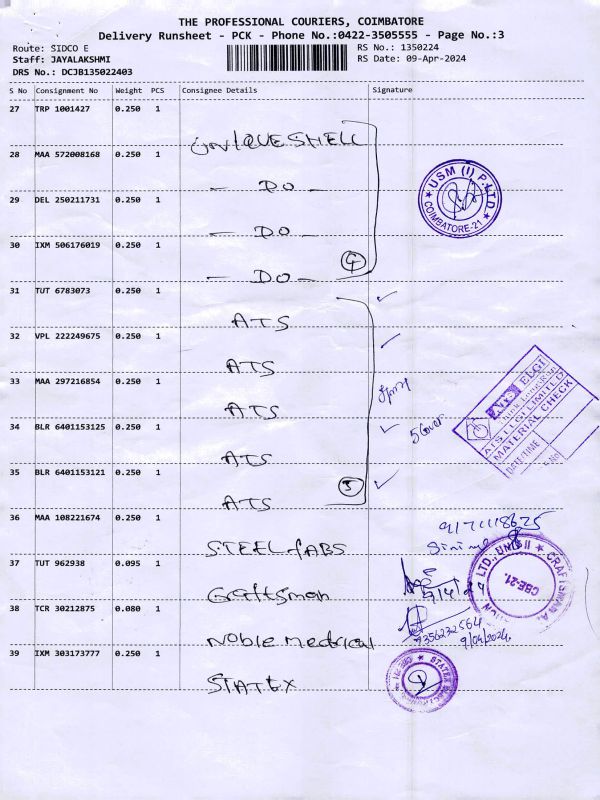 THE PROFESSIONAL COURIERS, COIMBATORE
Delivery Runsheet - PCK - Phone No.:0422-3505555 - Page No.:3
Route: SIDCO E
RS No.: 1350224
Staff: JAYALAKSHMI
RS Date: 09-Apr-2024
DRS No.: DCJB135022403
S No Consignment No Weight PCS Consignee Details Signature
27 TRP 1001427 0.250 1
UNIQUE SHELL
28 MAA 572008168 0.250 1
- DO -
29 DEL 250211731 0.250 1
- DO -
30 IXM 506176019 0.250 1
- DO - 4
USM (I) P. LTD.
COIMBATORE-21
31 TUT 6783073 0.250 1
ATS
32 VPL 222249675 0.250 1
ATS
33 MAA 297216854 0.250 1
ATS
34 BLR 6401153125 0.250 1
5 Cover
ATS
35 BLR 6401153121 0.250 1
5
ATS
ATS ELGI
ATS ELGI LIMITED
MATERIAL CHECK
DATE/TIME
36 MAA 108221674 0.250 1
STEEL fABS
37 TUT 962938 0.095 1
LTD., UNIT II
CBE-21.
9/4/24
Craftsman
38 TCR 30212875 0.080 1
9356232564
9/04/2024
Noble Medical
39 IXM 303173777 0.250 1
STATEX